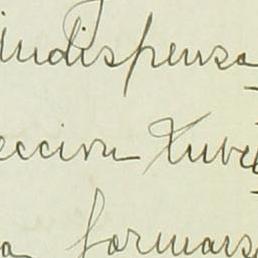 indispensa
eccion Xubre
a formars